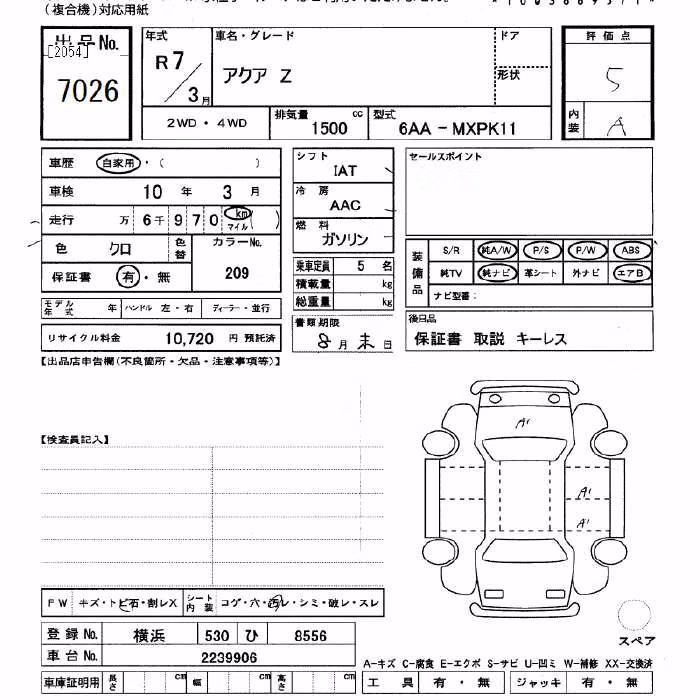 （複合機）対応用紙
出品No. [2054] 7026
年式 R7／3月
車名・グレード アクア Z
ドア
形状
評価点 5
内装 A
2WD・4WD 排気量 1500 cc 型式 6AA－MXPK11
車歴 自家用・（ ）
車検 10年 3月
走行 万 6千 9 7 0 km マイル（ ）
色 クロ 色替 カラーNo. 209
保証書 有・無
モデル年式 年 ハンドル 左・右 ディーラー・並行
リサイクル料金 10,720 円 預託済
シフト IAT
冷房 AAC
燃料 ガソリン
乗車定員 5 名
積載量 kg
総重量 kg
書類期限
8月末日
セールスポイント
装備品 S/R 純A/W P/S P/W ABS
純TV 純ナビ 革シート 外ナビ エアB
ナビ型番：
後日品
保証書 取説 キーレス
【出品店申告欄（不良箇所・欠品・注意事項等）】
【検査員記入】
A1
A1
A1
FW キズ・トビ石・割レX シート内装 コゲ・穴・汚レ・シミ・破レ・スレ
登録No. 横浜 530 ひ 8556
車台No. 2239906
車庫証明用 長さ cm 幅 cm 高さ cm
スペア
A-キズ C-腐食 E-エクボ S-サビ U-凹ミ W-補修 XX-交換済
工具 有・無 ジャッキ 有・無